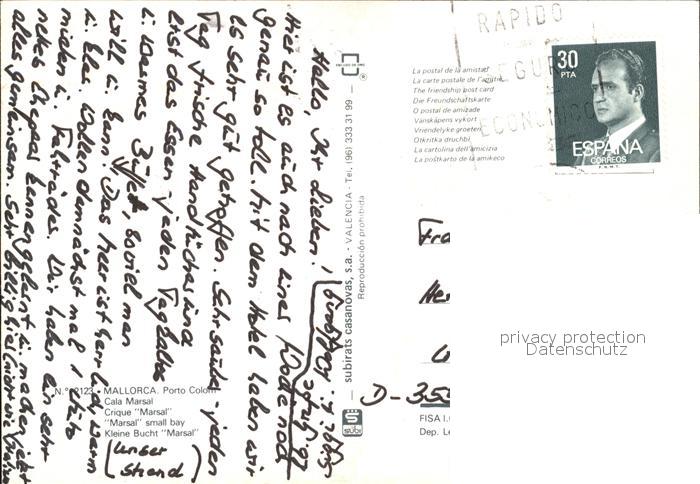 Hallo Ihr Lieben!
Hier ist es auch nach einer Woche noch
genau so toll. Mit dem Hotel haben wir
es sehr gut getroffen. Sehr sauber - jeden
Tag frische Handtücher und
erst das Essen - jeden Tag kaltes
u. warmes Büfett, soviel man
will u. kann. Das Meer ist herrlich warm
u. klar. Wollen demnächst mal 1 Auto
mieten u. Fahrräder. Wir haben ein sehr
nettes Ehepaar kennengelernt u. machen jetzt
alles gemeinsam. Sehr
N.º 2123 - MALLORCA. Porto Colom
Cala Marsal
Crique "Marsal"
"Marsal" small bay
Kleine Bucht "Marsal"
(unser
Strand)
subirats casanovas, s.a. - VALENCIA - Tel. (96) 333 31 99 -
Reproducción prohibida
La postal de la amistad
La carte postale de l'amitié
The friendship post card
Die Freundschaftskarte
O postal de amizade
Vänskapens vykort
Vriendelyke groeten
Otkritka druchbi
La cartolina dell'amicizia
La poŝtkarto de la amikeco
RAPIDO
SEGUR
ECONOMICO
30
PTA
ESPAÑA
CORREOS
F.N.M.T.
Fra
D-353
FISA I.
Dep. Le
privacy protection
Datenschutz